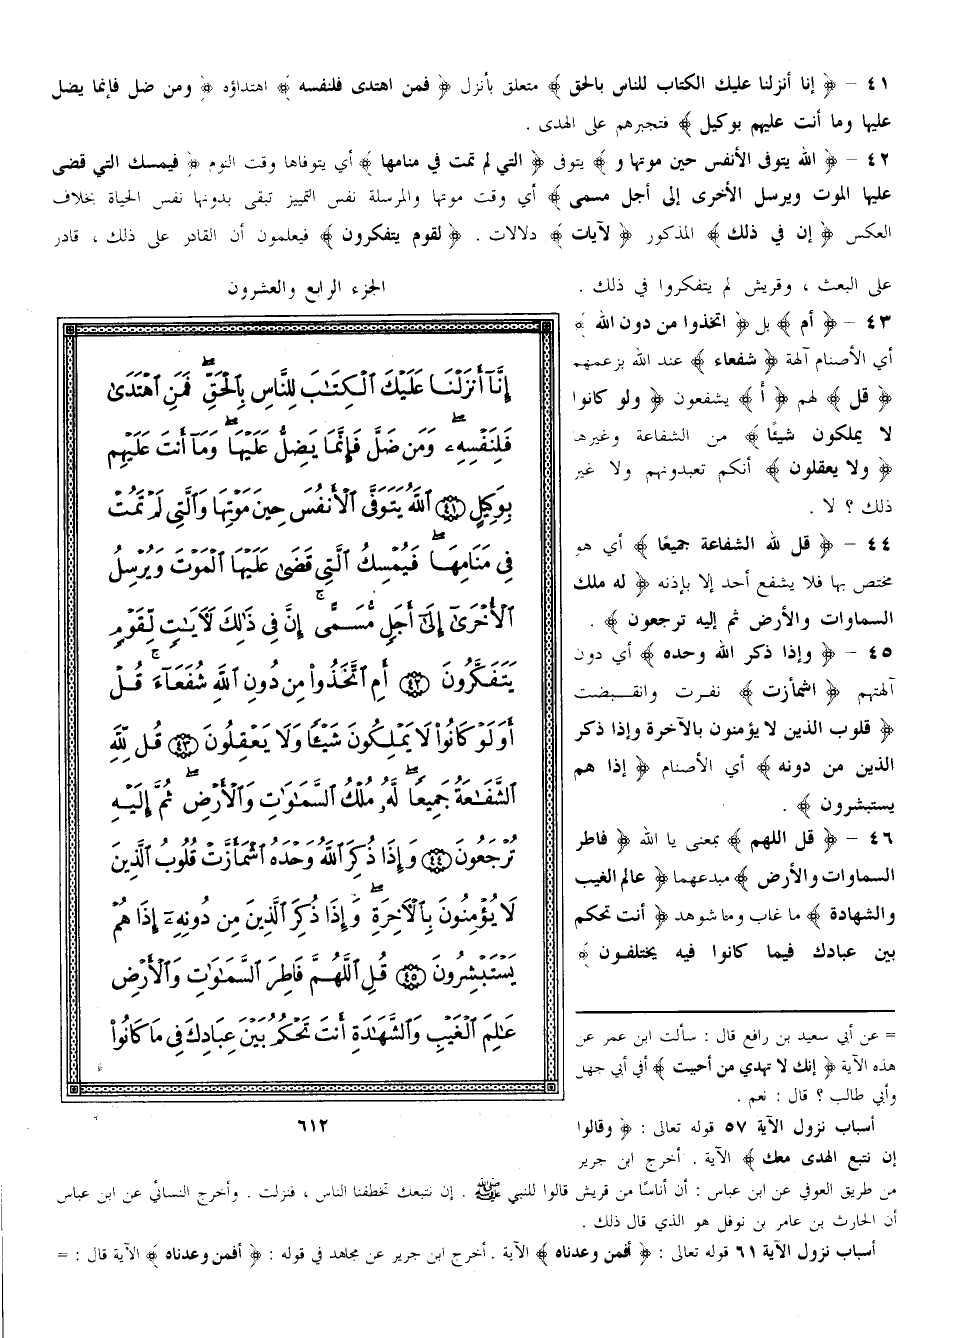 ٤١ – ﴿ إنا أنزلنا عليك الكتاب للناس بالحق ﴾ متعلق بأنزل ﴿ فمن اهتدى فلنفسه ﴾ اهتداؤه ﴿ ومن ضل فإنما يضل
عليها وما أنت عليهم بوكيل ﴾ فتجبرهم على الهدى .
٤٢ – ﴿ الله يتوفى الأنفس حين موتها و ﴾ يتوفى ﴿ التي لم تمت في منامها ﴾ أي يتوفاها وقت النوم ﴿ فيمسك التي قضى
عليها الموت ويرسل الأخرى إلى أجل مسمى ﴾ أي وقت موتها والمرسلة نفس التمييز تبقى بدونها نفس الحياة بخلاف
العكس ﴿ إن في ذلك ﴾ المذكور ﴿ لآيات ﴾ دلالات . ﴿ لقوم يتفكرون ﴾ فيعلمون أن القادر على ذلك ، قادر
على البعث ، وقريش لم يتفكروا في ذلك .
٤٣ – ﴿ أم ﴾ بل ﴿ اتخذوا من دون الله ﴾
أي الأصنام آلهة ﴿ شفعاء ﴾ عند الله بزعمهم
﴿ قل ﴾ لهم ﴿ أ ﴾ يشفعون ﴿ ولو كانوا
لا يملكون شيئًا ﴾ من الشفاعة وغيرها
﴿ ولا يعقلون ﴾ أنكم تعبدونهم ولا غير
ذلك ؟ لا .
٤٤ – ﴿ قل لله الشفاعة جميعًا ﴾ أي هو
مختص بها فلا يشفع أحد إلا بإذنه ﴿ له ملك
السماوات والأرض ثم إليه ترجعون ﴾ .
٤٥ – ﴿ وإذا ذكر الله وحده ﴾ أي دون
آلهتهم ﴿ اشمأزت ﴾ نفرت وانقبضت
﴿ قلوب الذين لا يؤمنون بالآخرة وإذا ذكر
الذين من دونه ﴾ أي الأصنام ﴿ إذا هم
يستبشرون ﴾ .
٤٦ – ﴿ قل اللهم ﴾ بمعنى يا الله ﴿ فاطر
السماوات والأرض ﴾ مبدعهما ﴿ عالم الغيب
والشهادة ﴾ ما غاب وما شوهد ﴿ أنت تحكم
بين عبادك فيما كانوا فيه يختلفون ﴾
الجزء الرابع والعشرون
إِنَّآ أَنزَلْنَا عَلَيْكَ ٱلْكِتَٰبَ لِلنَّاسِ بِٱلْحَقِّ ۖ فَمَنِ ٱهْتَدَىٰ
فَلِنَفْسِهِۦ ۖ وَمَن ضَلَّ فَإِنَّمَا يَضِلُّ عَلَيْهَا ۖ وَمَآ أَنتَ عَلَيْهِم
بِوَكِيلٍ ﴿٤١﴾ ٱللَّهُ يَتَوَفَّى ٱلْأَنفُسَ حِينَ مَوْتِهَا وَٱلَّتِى لَمْ تَمُتْ
فِى مَنَامِهَا ۖ فَيُمْسِكُ ٱلَّتِى قَضَىٰ عَلَيْهَا ٱلْمَوْتَ وَيُرْسِلُ
ٱلْأُخْرَىٰٓ إِلَىٰٓ أَجَلٍ مُّسَمًّى ۚ إِنَّ فِى ذَٰلِكَ لَـَٔايَٰتٍ لِّقَوْمٍ
يَتَفَكَّرُونَ ﴿٤٢﴾ أَمِ ٱتَّخَذُوا۟ مِن دُونِ ٱللَّهِ شُفَعَآءَ ۚ قُلْ
أَوَلَوْ كَانُوا۟ لَا يَمْلِكُونَ شَيْـًٔا وَلَا يَعْقِلُونَ ﴿٤٣﴾ قُل لِّلَّهِ
ٱلشَّفَٰعَةُ جَمِيعًا ۖ لَّهُۥ مُلْكُ ٱلسَّمَٰوَٰتِ وَٱلْأَرْضِ ۖ ثُمَّ إِلَيْهِ
تُرْجَعُونَ ﴿٤٤﴾ وَإِذَا ذُكِرَ ٱللَّهُ وَحْدَهُ ٱشْمَأَزَّتْ قُلُوبُ ٱلَّذِينَ
لَا يُؤْمِنُونَ بِٱلْـَٔاخِرَةِ ۖ وَإِذَا ذُكِرَ ٱلَّذِينَ مِن دُونِهِۦٓ إِذَا هُمْ
يَسْتَبْشِرُونَ ﴿٤٥﴾ قُلِ ٱللَّهُمَّ فَاطِرَ ٱلسَّمَٰوَٰتِ وَٱلْأَرْضِ
عَٰلِمَ ٱلْغَيْبِ وَٱلشَّهَٰدَةِ أَنتَ تَحْكُمُ بَيْنَ عِبَادِكَ فِى مَا كَانُوا۟
٦١٢
= عن أبي سعيد بن رافع قال : سألت ابن عمر عن
هذه الآية ﴿ إنك لا تهدي من أحببت ﴾ أفي أبي جهل
وأبي طالب ؟ قال : نعم .
أسباب نزول الآية ٥٧ قوله تعالى : ﴿ وقالوا
إن نتبع الهدى معك ﴾ الآية . أخرج ابن جرير
من طريق العوفي عن ابن عباس : أن أناسًا من قريش قالوا للنبي ﷺ . إن نتبعك تخطفنا الناس ، فنزلت . وأخرج النسائي عن ابن عباس
أن الحارث بن عامر بن نوفل هو الذي قال ذلك .
أسباب نزول الآية ٦١ قوله تعالى : ﴿ أفمن وعدناه ﴾ الآية . أخرج ابن جرير عن مجاهد في قوله : ﴿ أفمن وعدناه ﴾ الآية قال : =